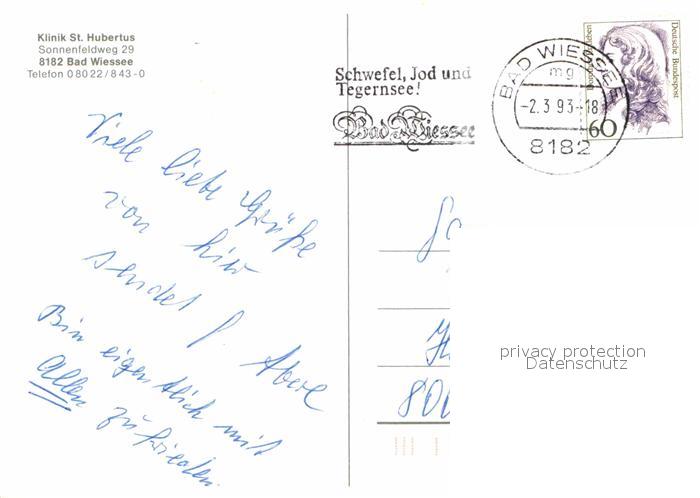 Klinik St. Hubertus
Sonnenfeldweg 29
8182 Bad Wiessee
Telefon 0 80 22 / 8 43 - 0
Schwefel, Jod und
Tegernsee!
Bad Wiessee
BAD WIESSEE
mg
-2.3.93-18
8182
Deutsche Bundespost
60
Viele liebe Grüße
von hier
sendet
Bin eigentlich mit
Allen zufrieden.
800
privacy protection
Datenschutz